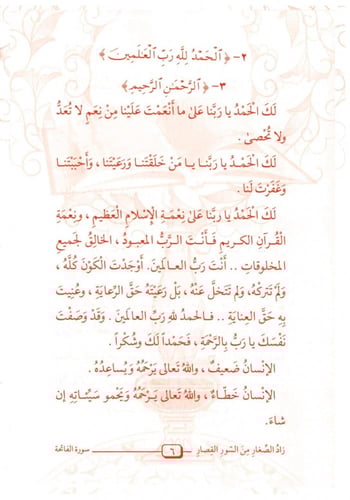 ٢- ﴿ ٱلْحَمْدُ لِلَّهِ رَبِّ ٱلْعَٰلَمِينَ ﴾
٣- ﴿ ٱلرَّحْمَٰنِ ٱلرَّحِيمِ ﴾
لَكَ الْحَمْدُ يا رَبَّنا عَلىٰ ما أَنْعَمْتَ عَلَيْنا مِنْ نِعَمٍ لا تُعَدُّ
ولا تُحْصىٰ .
لَكَ الْحَمْدُ يا رَبَّنا يا مَنْ خَلَقْتَنا وَرَعَيْتَنا ، وَأَحْبَبْتَنا
وَغَفَرْتَ لَنا .
لَكَ الْحَمْدُ يا رَبَّنا عَلىٰ نِعْمَةِ الإِسْلامِ العَظيمِ ، ونِعْمَةِ
الْقُرآنِ الكريمِ فَـأَنْتَ الـرَّبُّ المَعبودُ ، الخالِقُ لجَميعِ
المخلوقاتِ .. أَنْتَ رَبُّ العـالمينَ. أَوْجَدْتَ الْكَوْنَ كُلَّهُ ،
وَلَمْ تَتركْهُ، وَلم تَتَخَلَّ عَنْهُ ، بَلْ رَعَيْتَهُ حَقَّ الرِّعايَةِ ، وَعُنِيتَ
بِهِ حَقَّ العِنايَةِ .. فـالحَمدُ للهِ رَبِّ العالَمينَ. وَقَدْ وَصَفْتَ
نَفْسَكَ يا رَبُّ بِالرَّحْمَةِ ، فَحَمْداً لَكَ وَشُكْراً .
الإِنْسانُ ضَعيفٌ ، واللهُ تَعالى يَرْحَمُهُ وَيُساعِدُهُ .
الإِنْسانُ خَطَّاءٌ ، واللهُ تَعالى يَـرْحَمُهُ وَيَمْحو سَيِّئـاتِهِ إن
شاءَ.
زادُ الصِّغارِ مِنَ السّورِ القِصارِ ٦ سورة الفاتحة